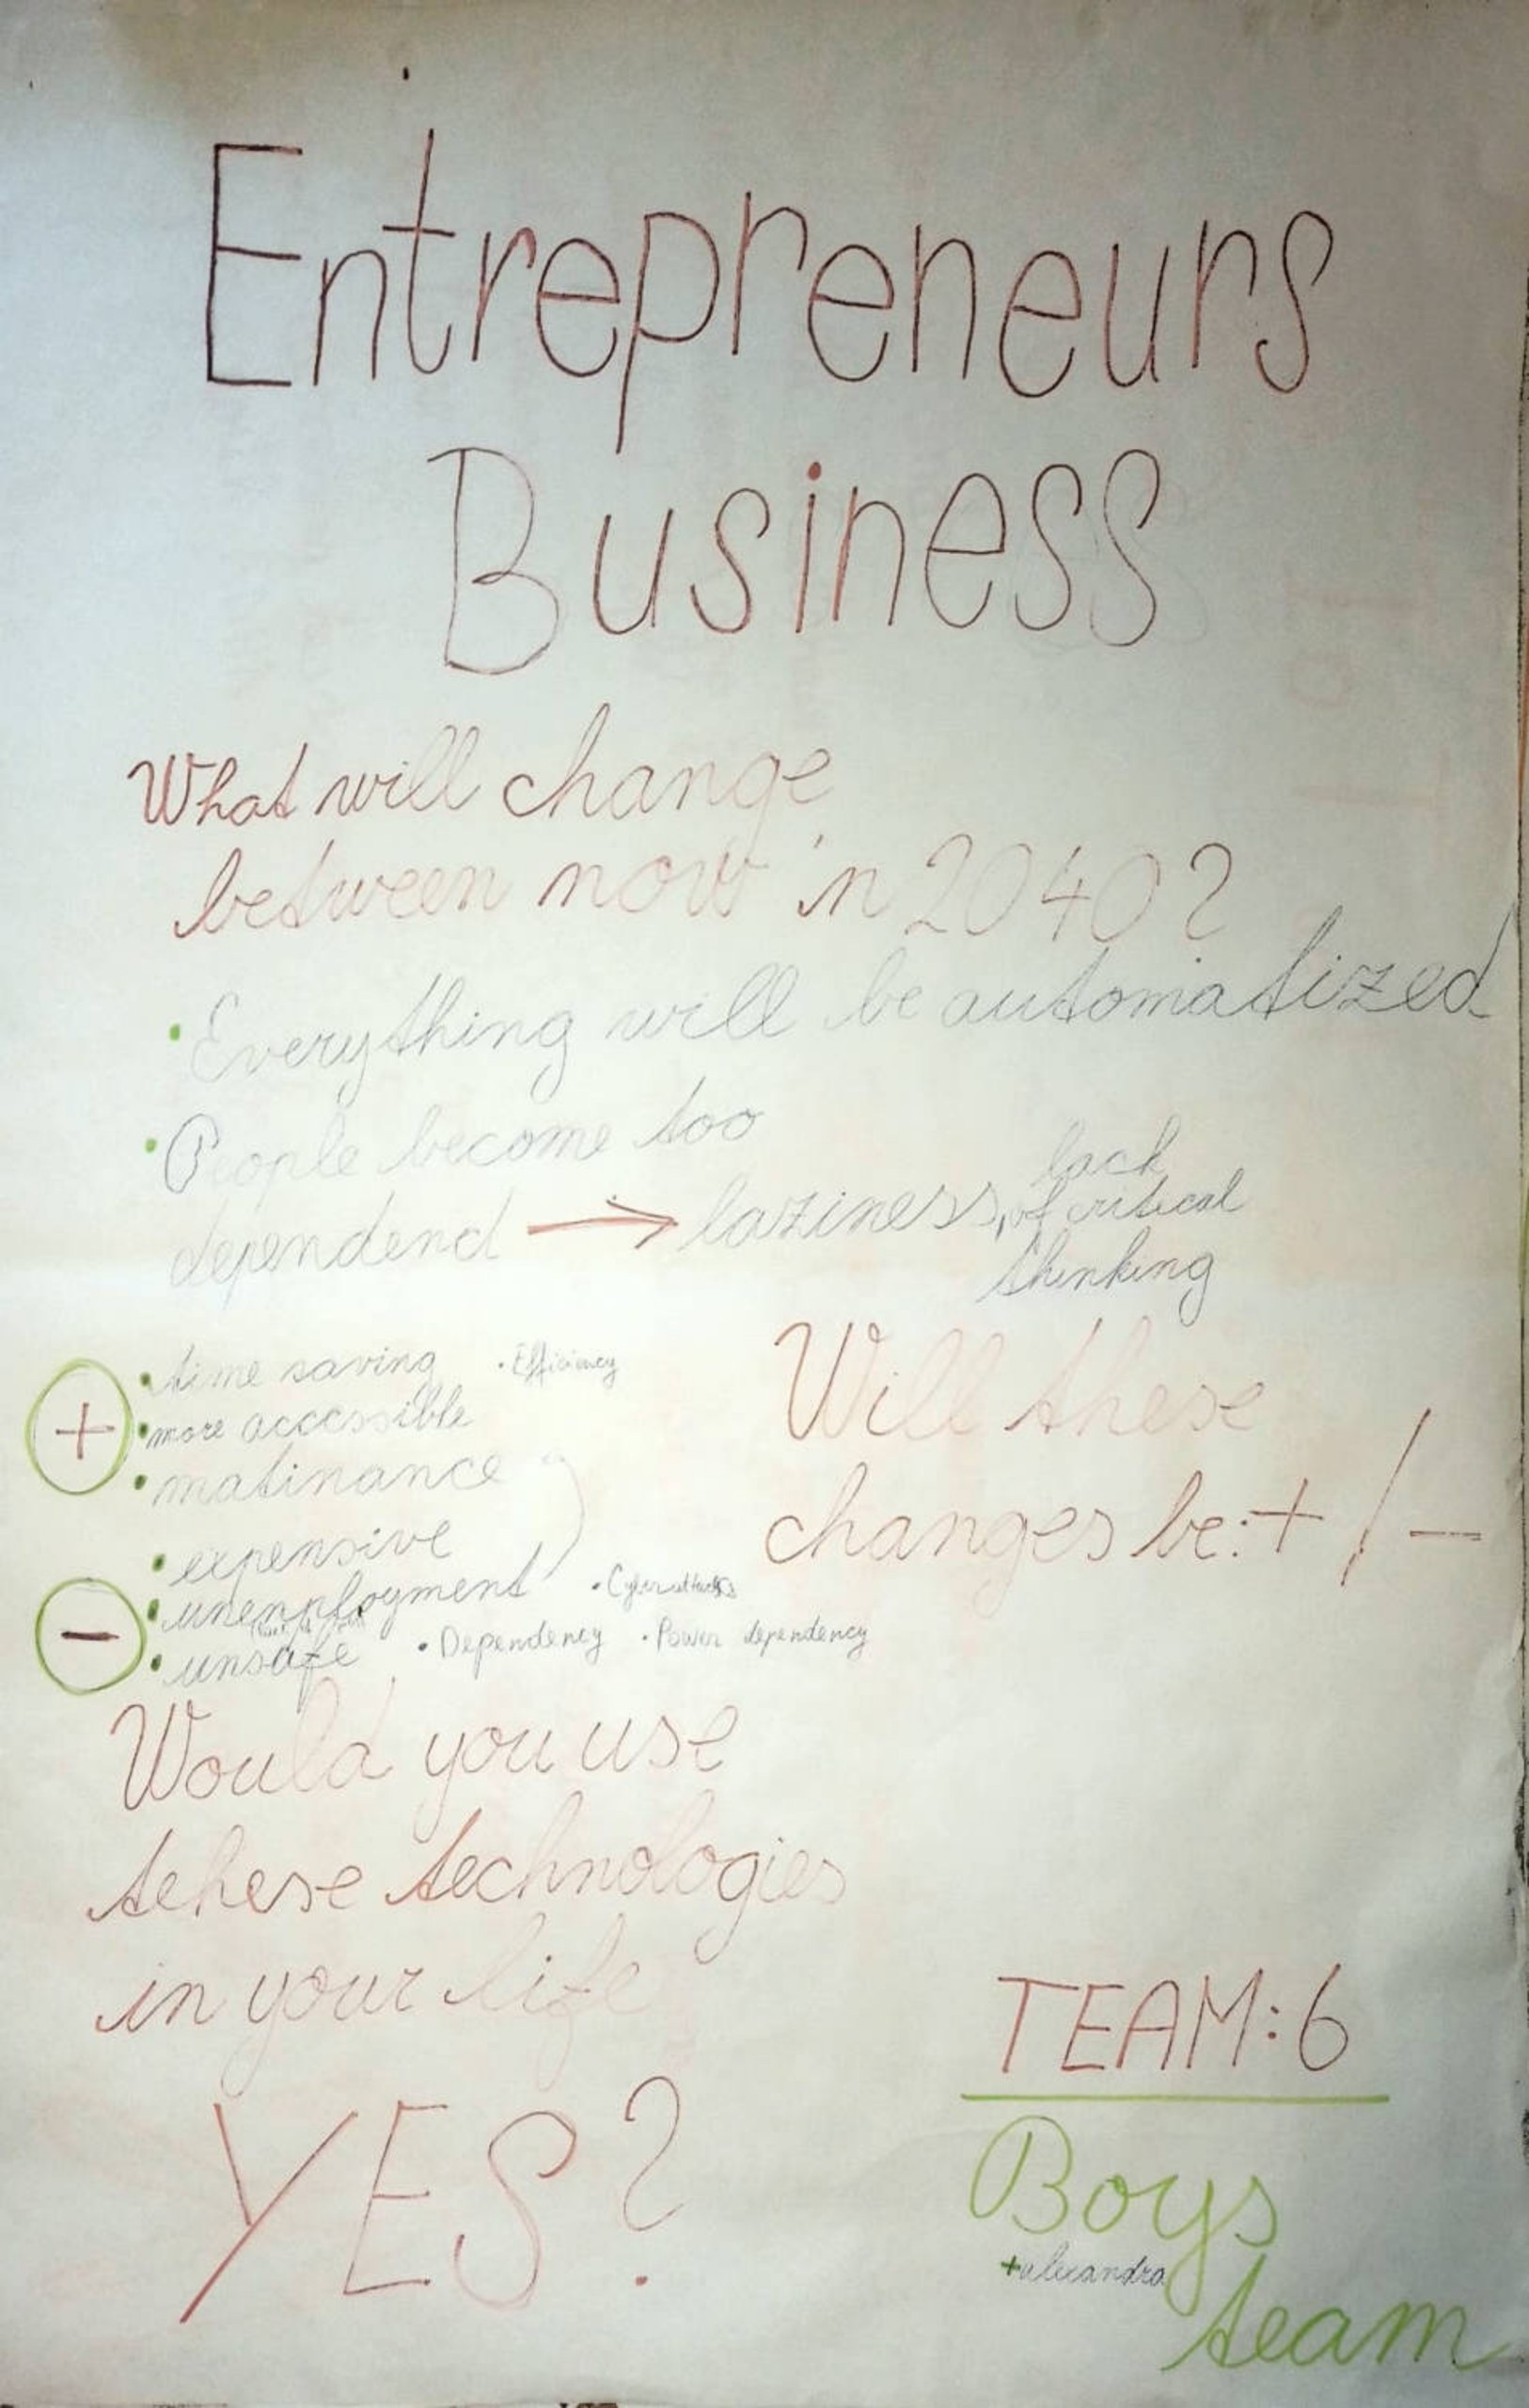 Entrepreneurs
Business
What will change
between now in 2040?
• Everything will be automatized
• People become too
dependend → laziness, lack
of critical
thinking
+
• time saving • Efficiency
• more accessible
• matinance
Will these
changes be: + / -
-
• expensive
• unenployment • Cyber attacks
• unsafe • Dependency • Power dependency
Would you use
tehese technologies
in your life
YES?
TEAM: 6
Boys
+alexandra
team